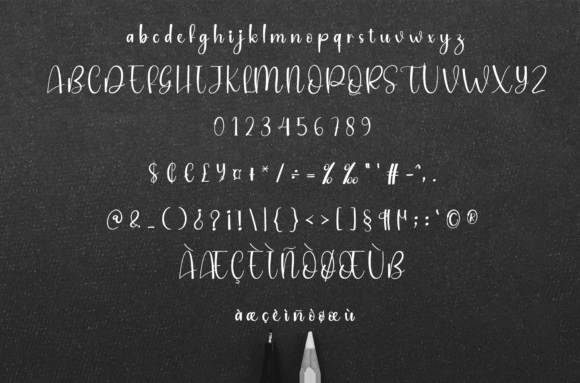 abcdefghijklmnopqrstuvwxyz
ABCDEFGHIJKLMNOPQRSTUVWXYZ
0123456789
$ ₵ € £ ¥ ¤ + * / ÷ = % ‰ " ' # - ^ , .
@ & _ ( ) ¿ ? ¡ ! \ | { } < > [ ] § ¶ µ ; : ` © ®
ÀÆÇÈÌÑÒØŒÙß
àæçèìñòøœù